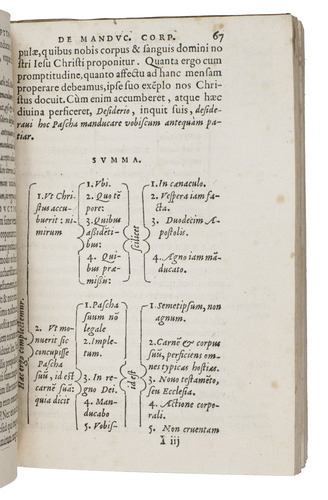 DE MANDVC. CORP. 67
pulæ, quibus nobis corpus & sanguis domini no
stri Iesu Christi proponitur. Quanta ergo cum
promptitudine, quanto affectu ad hanc mensam
properare debeamus, ipse suo exẽplo nos Chri
stus docuit. Cùm enim accumberet, atque hæc
diuina perficeret, Desiderio, inquit suis, deside
raui hoc Pascha manducare vobiscum antequàm pa
tiar.
SVMMA.
Hæc ergo complectemur.
1. Vt Chri
stus accu
buerit: ni
mirum
1. Vbi.
2. Quo tẽ
pore:
3. Quibus
aßidẽti
bus:
4. Qui
bus præ
mißis:
scilicet
1. In cænaculo.
2. Vespera iam fa
cta.
3. Duodecim A
postolis.
4. Agno iam mã
ducato.
2. Vt mo
nuerit sic
concupisse
Pascha
suũ, id est
carnẽ suã:
quia dicit
1. Pascha
suum nõ
legale
2. Imple
tum.
3. In re
gno Dei.
4. Man
ducabo
5. Vobis-
id est
1. Semetipsum, non
agnum.
2. Carnẽ & corpus
suũ, perficiens om
nes typicas hostias.
3. Nouo testamẽto,
seu Ecclesia.
4. Actione corpo
rali.
5. Non cruentam
I iij